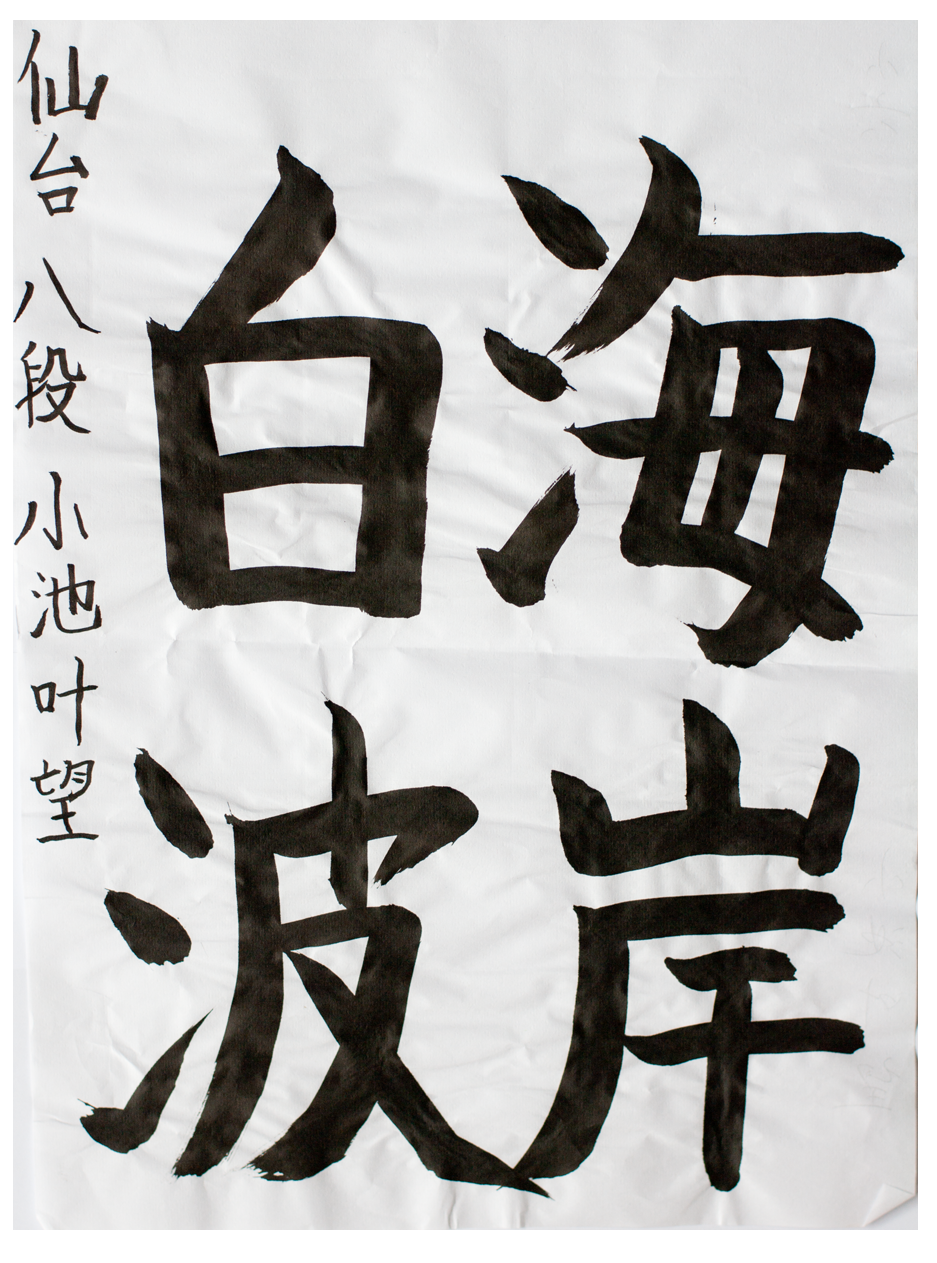 海岸
白波
仙台 八段 小池叶望